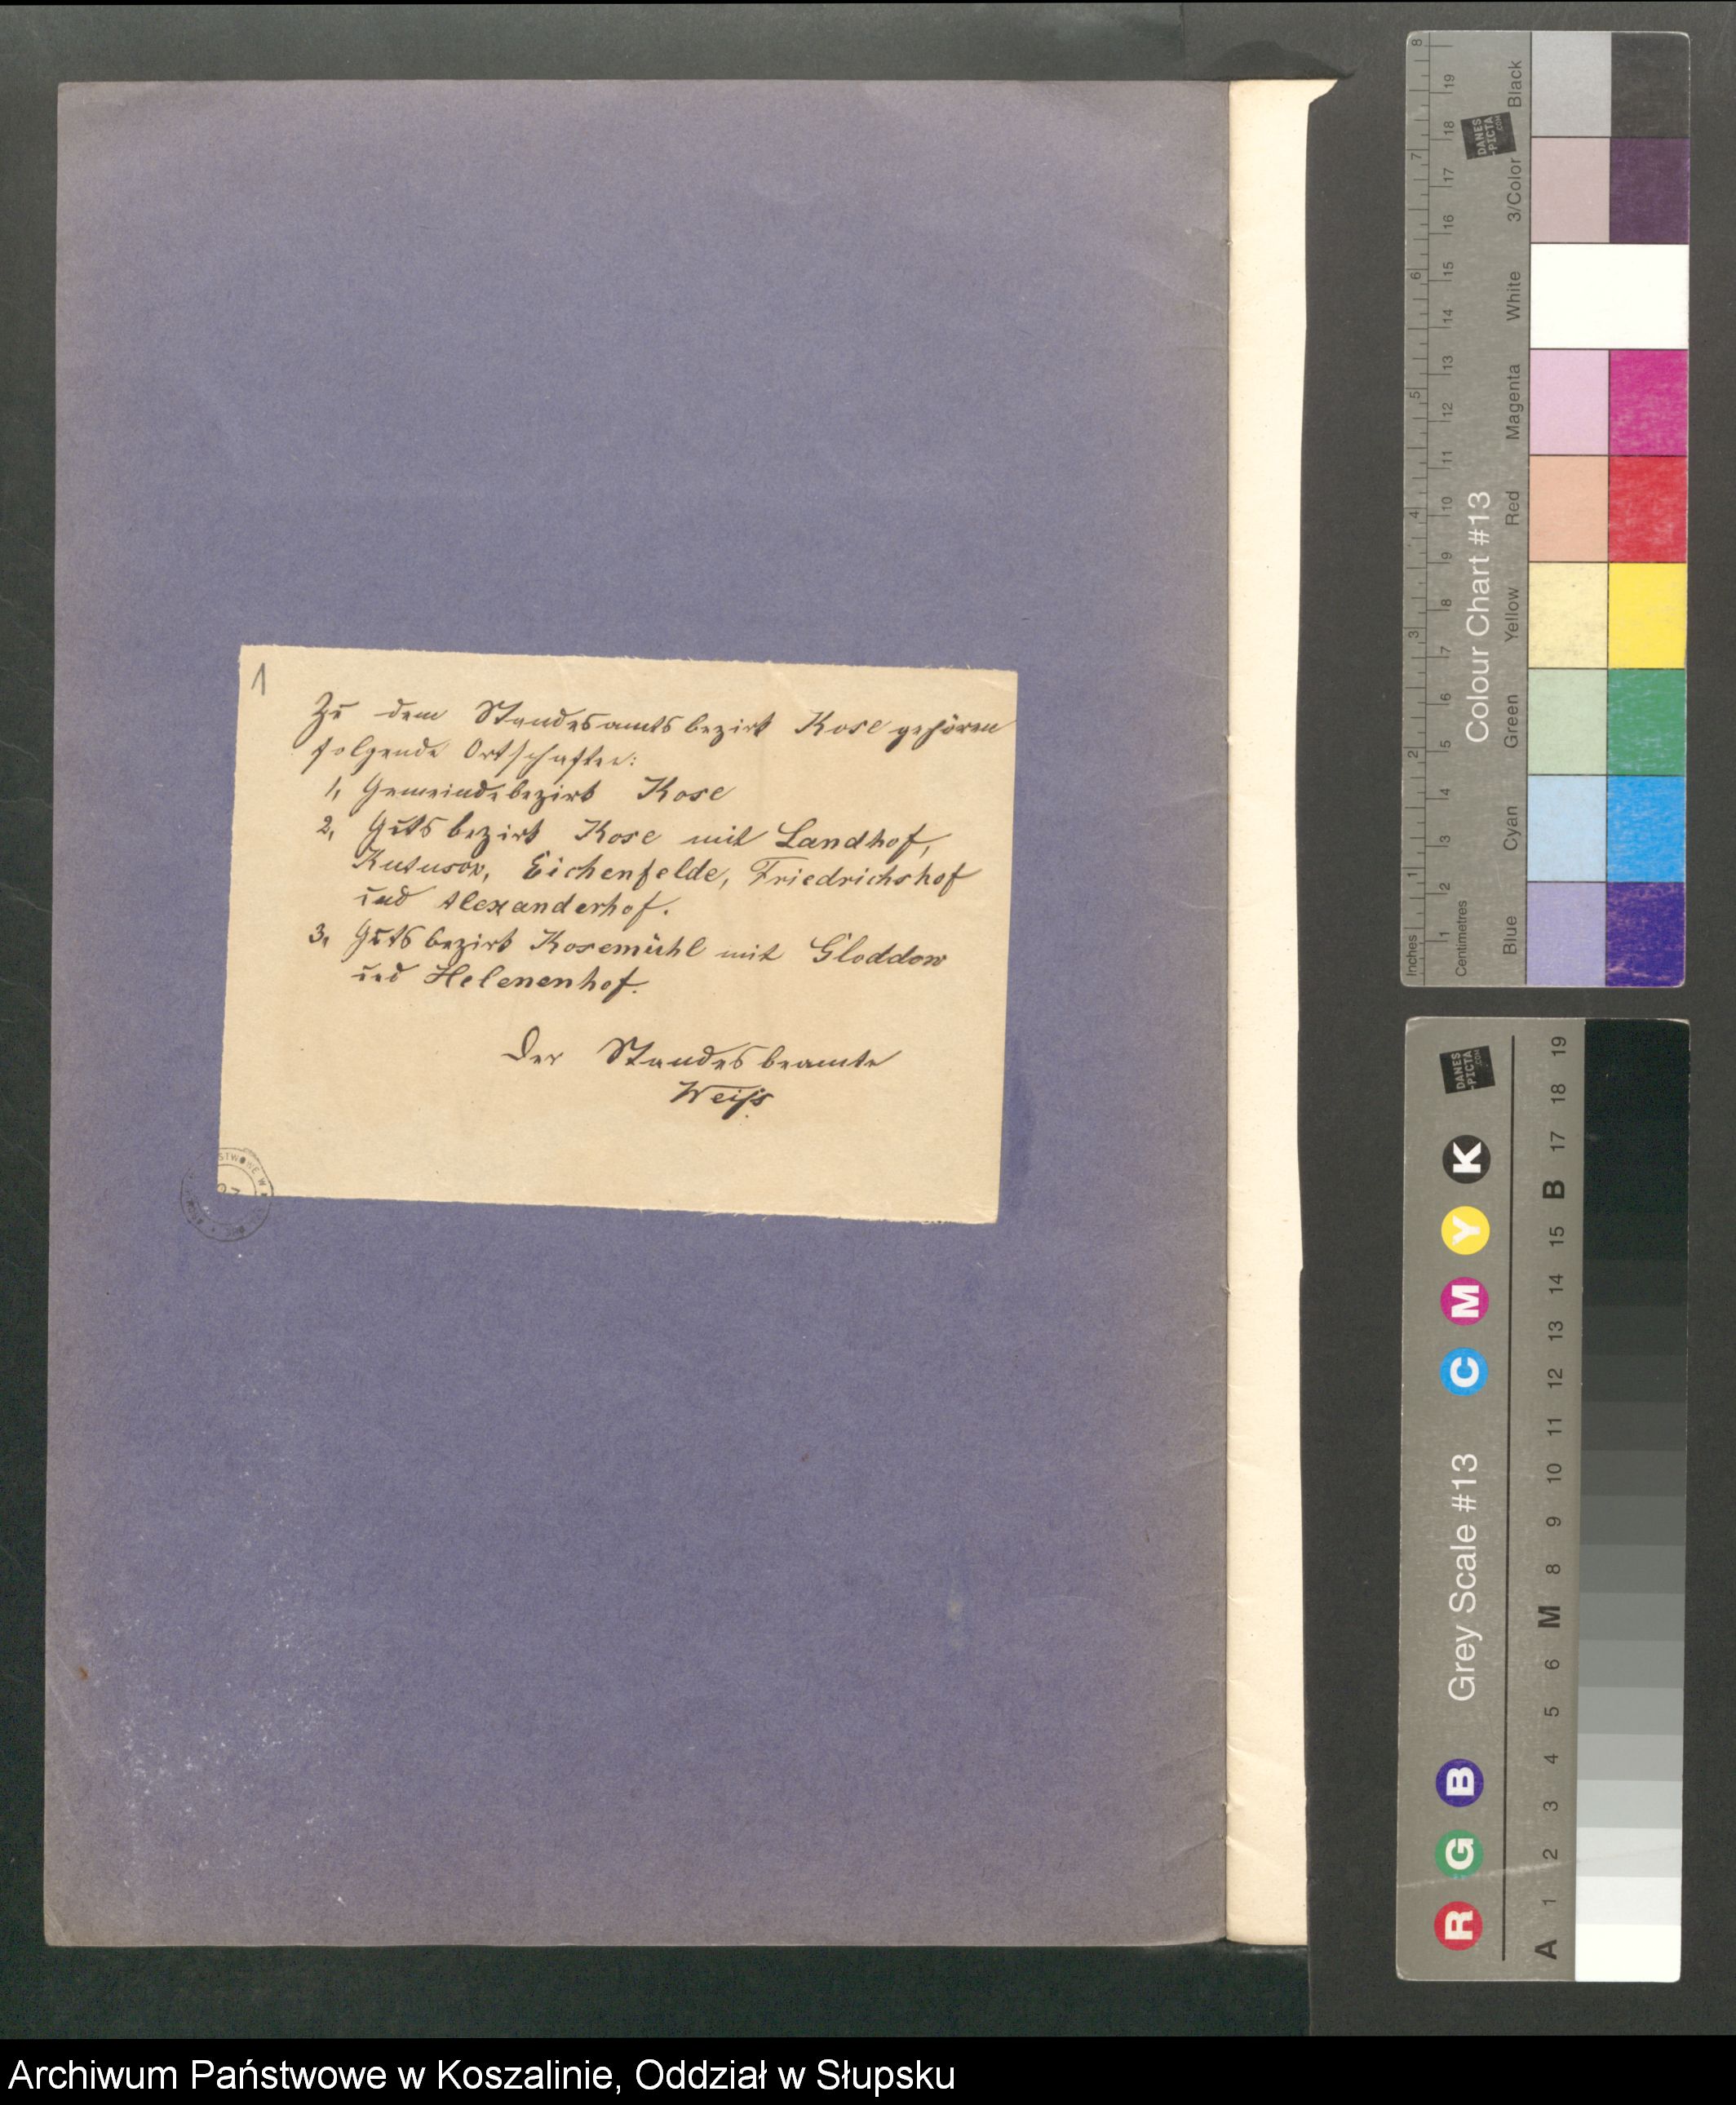 1
Zu dem Standesamtsbezirk Kose gehören
folgende Ortschaften:
1, Gemeindebezirk Kose
2, Gutsbezirk Kose mit Landhof,
Kutusow, Eichenfelde, Friedrichshof
und Alexanderhof.
3, Gutsbezirk Kosemühl mit Gloddow
und Helenenhof.
Der Standesbeamte
Weiß
STWOWE W
Inches 1 2 3 4 5 6 7 8
Centimetres 1 2 3 4 5 6 7 8 9 10 11 12 13 14 15 16 17 18 19
Colour Chart #13
DANES
-PICTA
.COM
Blue Cyan Green Yellow Red Magenta White 3/Color Black
R G B Grey Scale #13 C M Y K
DANES
-PICTA
.COM
A 1 2 3 4 5 6 M 8 9 10 11 12 13 14 15 B 17 18 19
Archiwum Państwowe w Koszalinie, Oddział w Słupsku